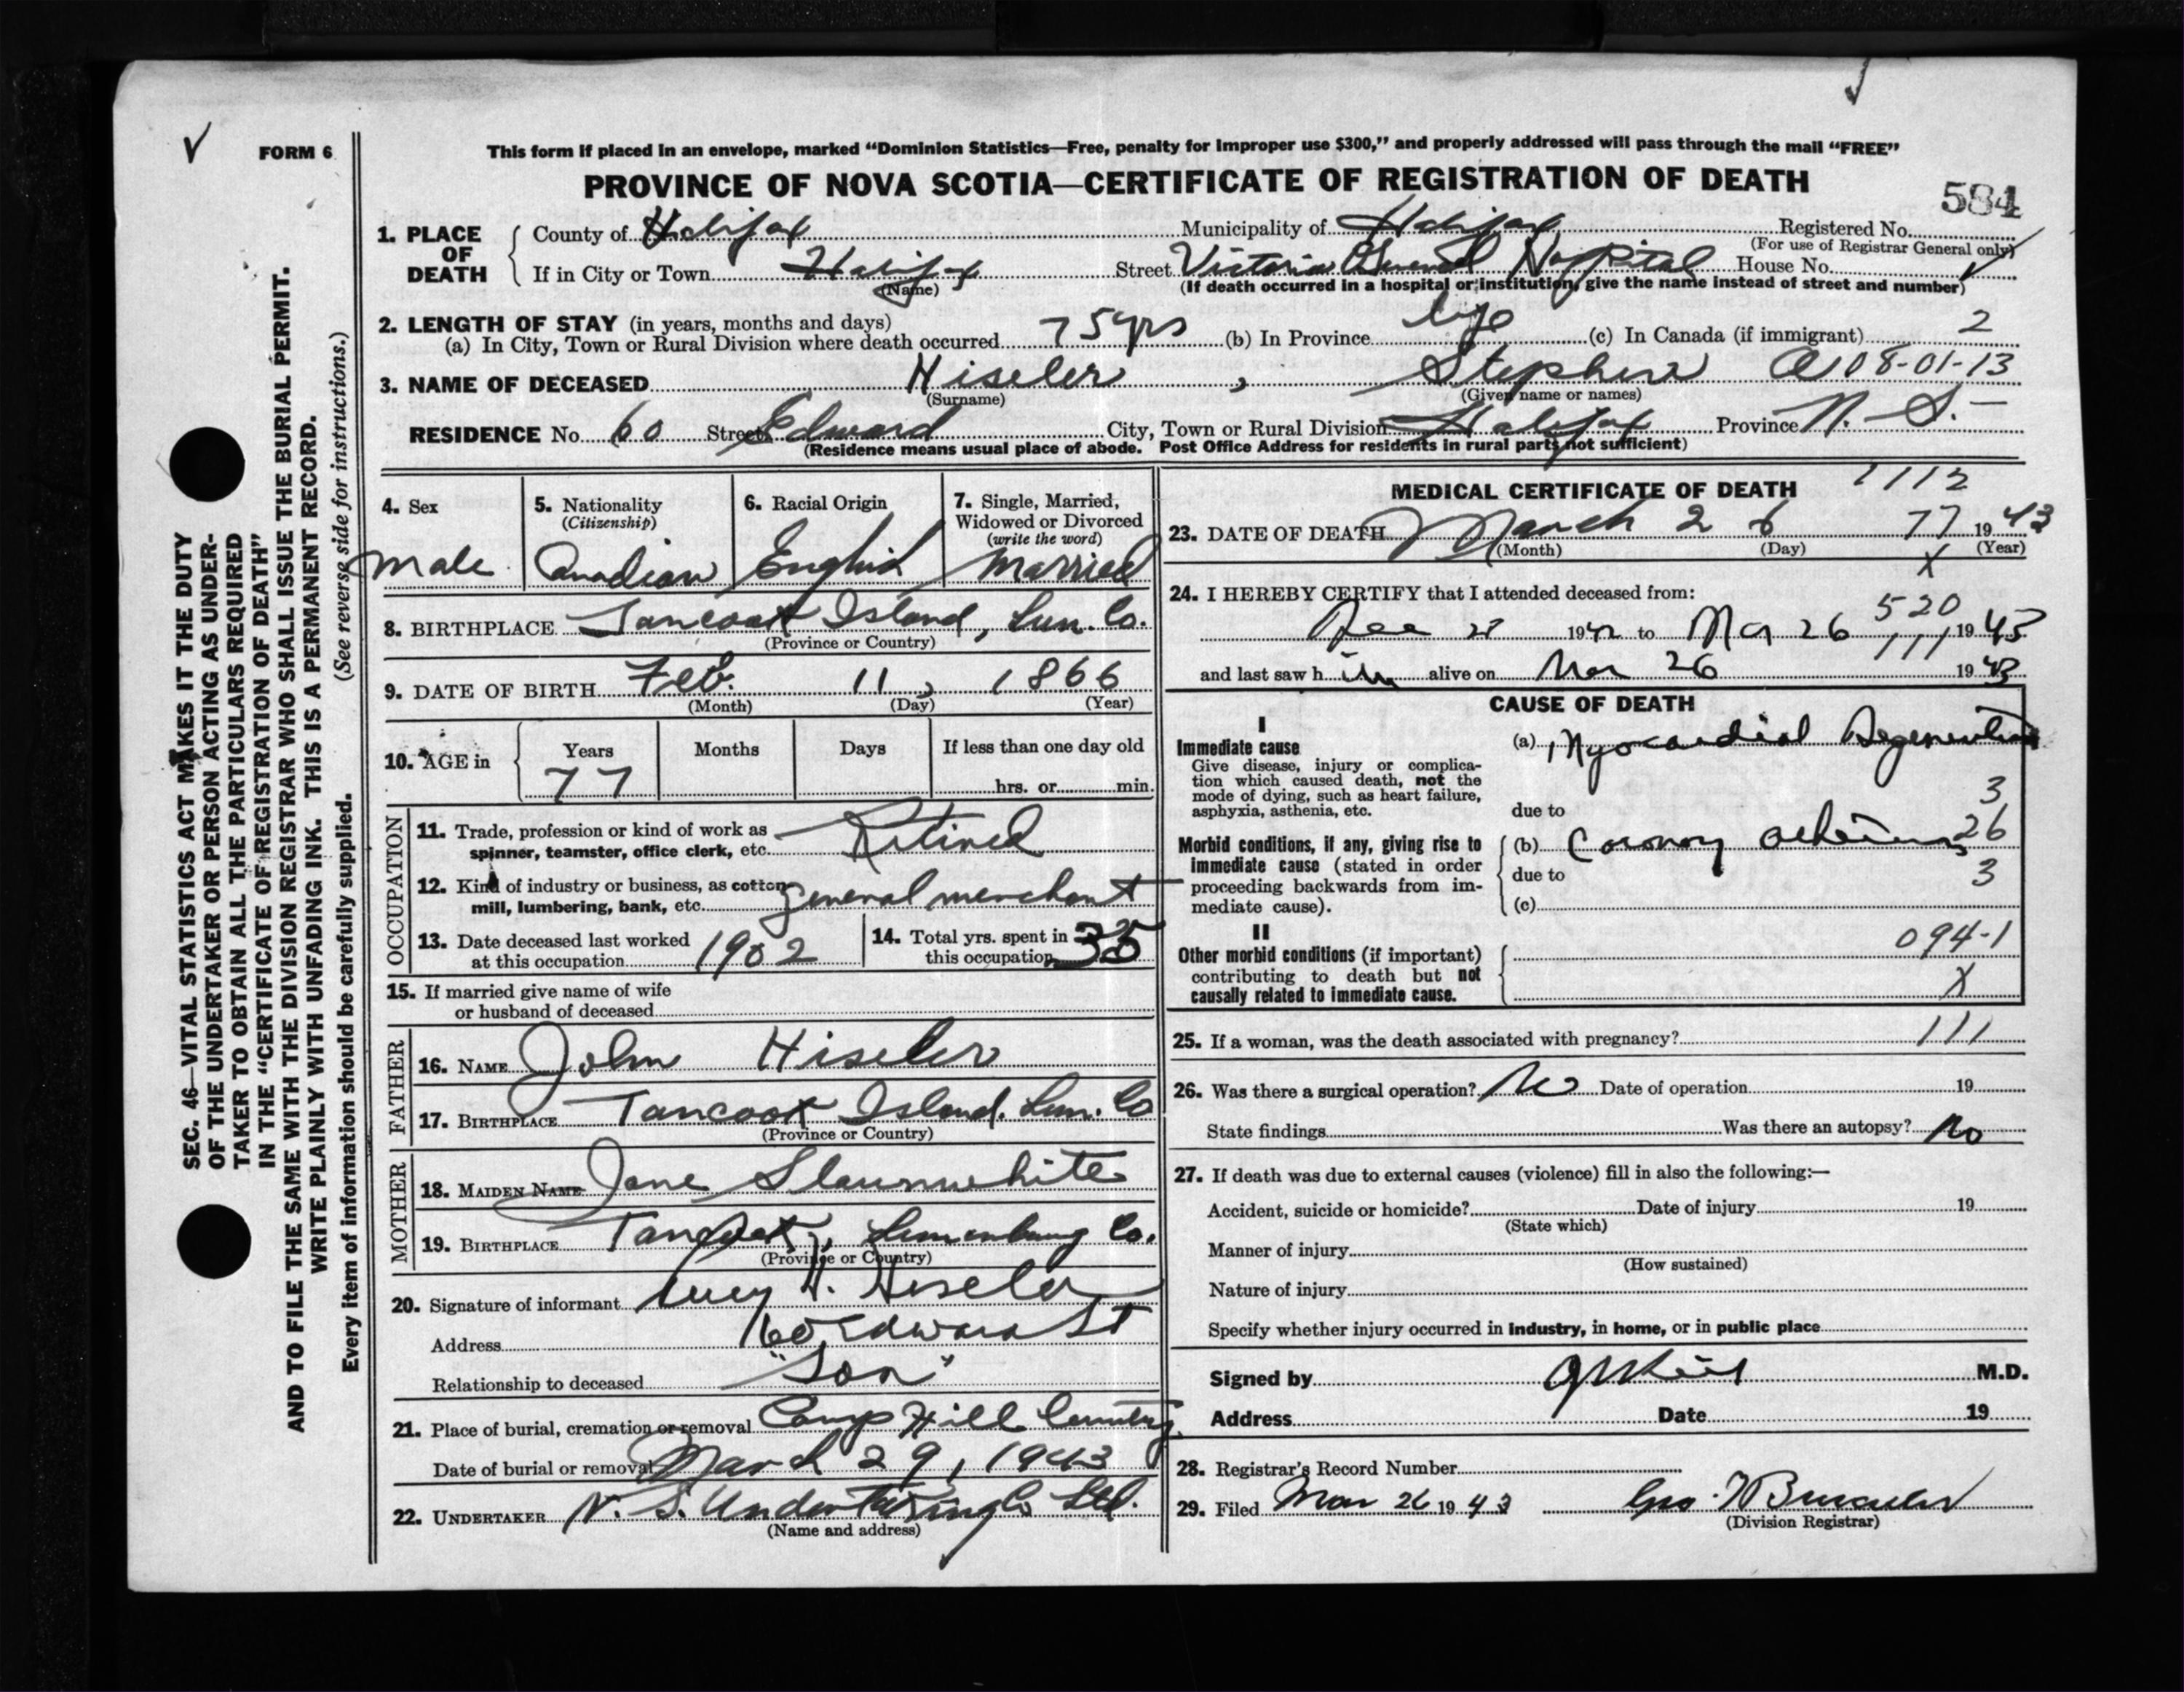 FORM 6
This form if placed in an envelope, marked “Dominion Statistics—Free, penalty for improper use $300,” and properly addressed will pass through the mail “FREE”
PROVINCE OF NOVA SCOTIA—CERTIFICATE OF REGISTRATION OF DEATH
584
1. PLACE OF DEATH County of Halifax Municipality of Halifax Registered No.
(For use of Registrar General only)
If in City or Town Halifax Street Victoria General Hospital House No.
(Name) (If death occurred in a hospital or institution, give the name instead of street and number)
2. LENGTH OF STAY (in years, months and days)
(a) In City, Town or Rural Division where death occurred 75 yrs (b) In Province life (c) In Canada (if immigrant) 2
3. NAME OF DECEASED Hiseler, Stephen A 08-01-13
(Surname) (Given name or names)
RESIDENCE No. 60 Street Edward City, Town or Rural Division Halifax Province N. S.—
(Residence means usual place of abode. Post Office Address for residents in rural parts not sufficient)
4. Sex
male
5. Nationality
(Citizenship)
Canadian
6. Racial Origin
English
7. Single, Married,
Widowed or Divorced
(write the word)
Married
8. BIRTHPLACE Tancook Island, Lun. Co.
(Province or Country)
9. DATE OF BIRTH Feb. 11, 1866
(Month) (Day) (Year)
10. AGE in Years Months Days If less than one day old
77 hrs. or min.
OCCUPATION
11. Trade, profession or kind of work as
spinner, teamster, office clerk, etc. Retired
12. Kind of industry or business, as cotton
mill, lumbering, bank, etc. general merchant
13. Date deceased last worked
at this occupation 1902
14. Total yrs. spent in
this occupation 35
15. If married give name of wife
or husband of deceased
FATHER
16. NAME John Hiseler
17. BIRTHPLACE Tancook Island. Lun. Co
(Province or Country)
MOTHER
18. MAIDEN NAME Jane Slaunwhite
19. BIRTHPLACE Tancook, Lunenburg Co.
(Province or Country)
20. Signature of informant H. Hiseler
Address 60 Edward St
Relationship to deceased "Son"
21. Place of burial, cremation or removal Camp Hill Cemetery
Date of burial or removal March 29, 1943
22. UNDERTAKER N. S. Undertaking Co Ltd.
(Name and address)
MEDICAL CERTIFICATE OF DEATH 1112
23. DATE OF DEATH March 26 77 1943
(Month) (Day) (Year)
X
24. I HEREBY CERTIFY that I attended deceased from:
520
Dec 1942 to Mar 26 1943
111
and last saw him alive on Mar 26 1943
CAUSE OF DEATH
I
Immediate cause
Give disease, injury or complica-
tion which caused death, not the
mode of dying, such as heart failure,
asphyxia, asthenia, etc.
(a) Myocardial Degeneration
3
due to
Morbid conditions, if any, giving rise to
immediate cause (stated in order
proceeding backwards from im-
mediate cause).
(b) Coronary 26
due to 3
(c)
II
Other morbid conditions (if important)
contributing to death but not
causally related to immediate cause.
094-1
X
25. If a woman, was the death associated with pregnancy? 111
26. Was there a surgical operation? No Date of operation 19
State findings Was there an autopsy? No
27. If death was due to external causes (violence) fill in also the following:—
Accident, suicide or homicide? Date of injury 19
(State which)
Manner of injury
(How sustained)
Nature of injury
Specify whether injury occurred in industry, in home, or in public place
Signed by M.D.
Address Date 19
28. Registrar's Record Number
29. Filed Mar 26 1943 Geo.
(Division Registrar)
SEC. 46—VITAL STATISTICS ACT MAKES IT THE DUTY
OF THE UNDERTAKER OR PERSON ACTING AS UNDER-
TAKER TO OBTAIN ALL THE PARTICULARS REQUIRED
IN THE “CERTIFICATE OF REGISTRATION OF DEATH”
AND TO FILE THE SAME WITH THE DIVISION REGISTRAR WHO SHALL ISSUE THE BURIAL PERMIT.
WRITE PLAINLY WITH UNFADING INK. THIS IS A PERMANENT RECORD.
Every item of information should be carefully supplied. (See reverse side for instructions.)